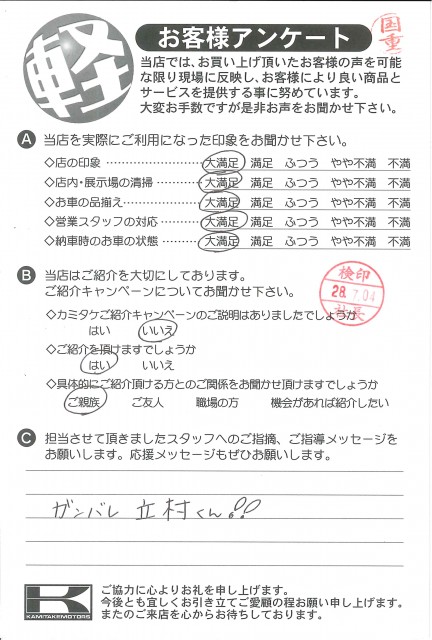 軽
お客様アンケート
国重
当店では、お買い上げ頂いたお客様の声を可能
な限り現場に反映し、お客様により良い商品と
サービスを提供する事に努めています。
大変お手数ですが是非お声をお聞かせ下さい。
A 当店を実際にご利用になった印象をお聞かせ下さい。
◇店の印象 …………………… 大満足 満足 ふつう やや不満 不満
◇店内・展示場の清掃 ………… 大満足 満足 ふつう やや不満 不満
◇お車の品揃え ……………… 大満足 満足 ふつう やや不満 不満
◇営業スタッフの対応 ………… 大満足 満足 ふつう やや不満 不満
◇納車時のお車の状態 ………… 大満足 満足 ふつう やや不満 不満
B 当店はご紹介を大切にしております。
ご紹介キャンペーンについてお聞かせ下さい。
検印
28.7.04
社長
◇カミタケご紹介キャンペーンのご説明はありましたでしょうか
はい いいえ
◇ご紹介を頂けますでしょうか
はい いいえ
◇具体的にご紹介頂ける方とのご関係をお聞かせ頂けますでしょうか
ご親族 ご友人 職場の方 機会があれば紹介したい
C 担当させて頂きましたスタッフへのご指摘、ご指導メッセージを
お願いします。応援メッセージもぜひお願いします。
ガンバレ 立村くん!!
K
KAMITAKEMOTORS
ご協力に心よりお礼を申し上げます。
今後とも宜しくお引き立てご愛顧の程お願い申し上げます。
またのご来店を心からお待ちしております。